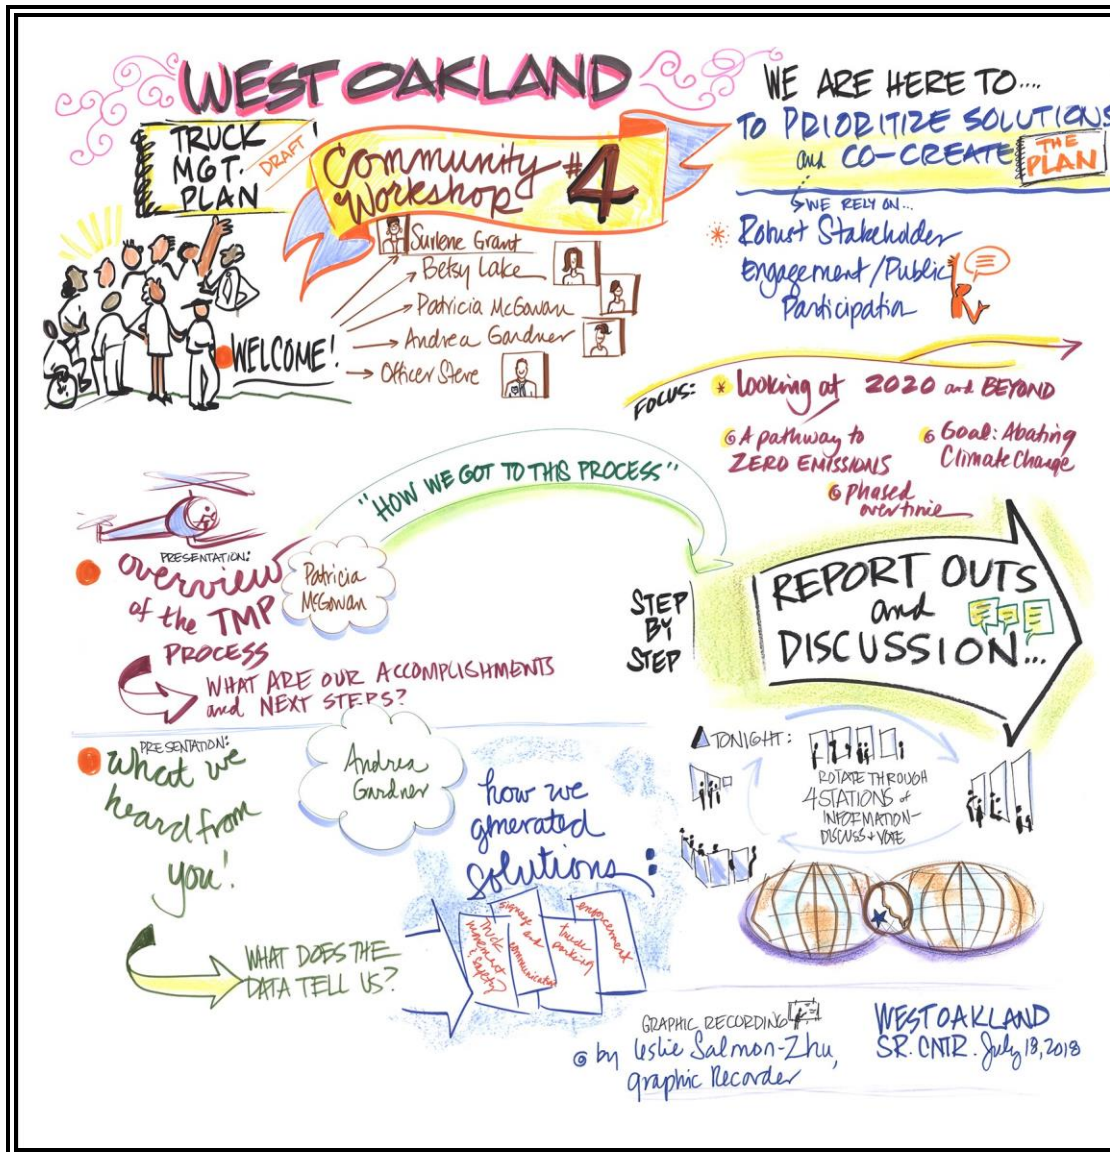 WEST OAKLAND
TRUCK
MGT.
PLAN
DRAFT!
Community
Workshop #4
Surlene Grant
Betsy Lake
Patricia McGowan
Andrea Gardner
Officer Steve
WELCOME!
WE ARE HERE TO....
TO PRIORITIZE SOLUTIONS
and CO-CREATE THE
PLAN
WE RELY ON...
Robust Stakeholder
Engagement/Public
Participation
FOCUS: * Looking at 2020 and BEYOND
A pathway to
ZERO EMISSIONS
Goal: Abating
Climate Change
phased
over time
"HOW WE GOT TO THIS PROCESS"
PRESENTATION:
overview
of the TMP
PROCESS
Patricia
McGowan
WHAT ARE OUR ACCOMPLISHMENTS
and NEXT STEPS?
STEP
BY
STEP
REPORT OUTS
and
DISCUSSION...
PRESENTATION:
What we
heard from
you!
Andrea
Gardner
WHAT DOES THE
DATA TELL US?
how we
generated
solutions:
truck
movement
& safety
signage and
communication
truck
parking
enforcement
TONIGHT:
ROTATE THROUGH
4 STATIONS of
INFORMATION-
DISCUSS + VOTE
GRAPHIC RECORDING
by Leslie Salmon-Zhu,
graphic Recorder
WEST OAKLAND
SR. CNTR. July 18, 2018